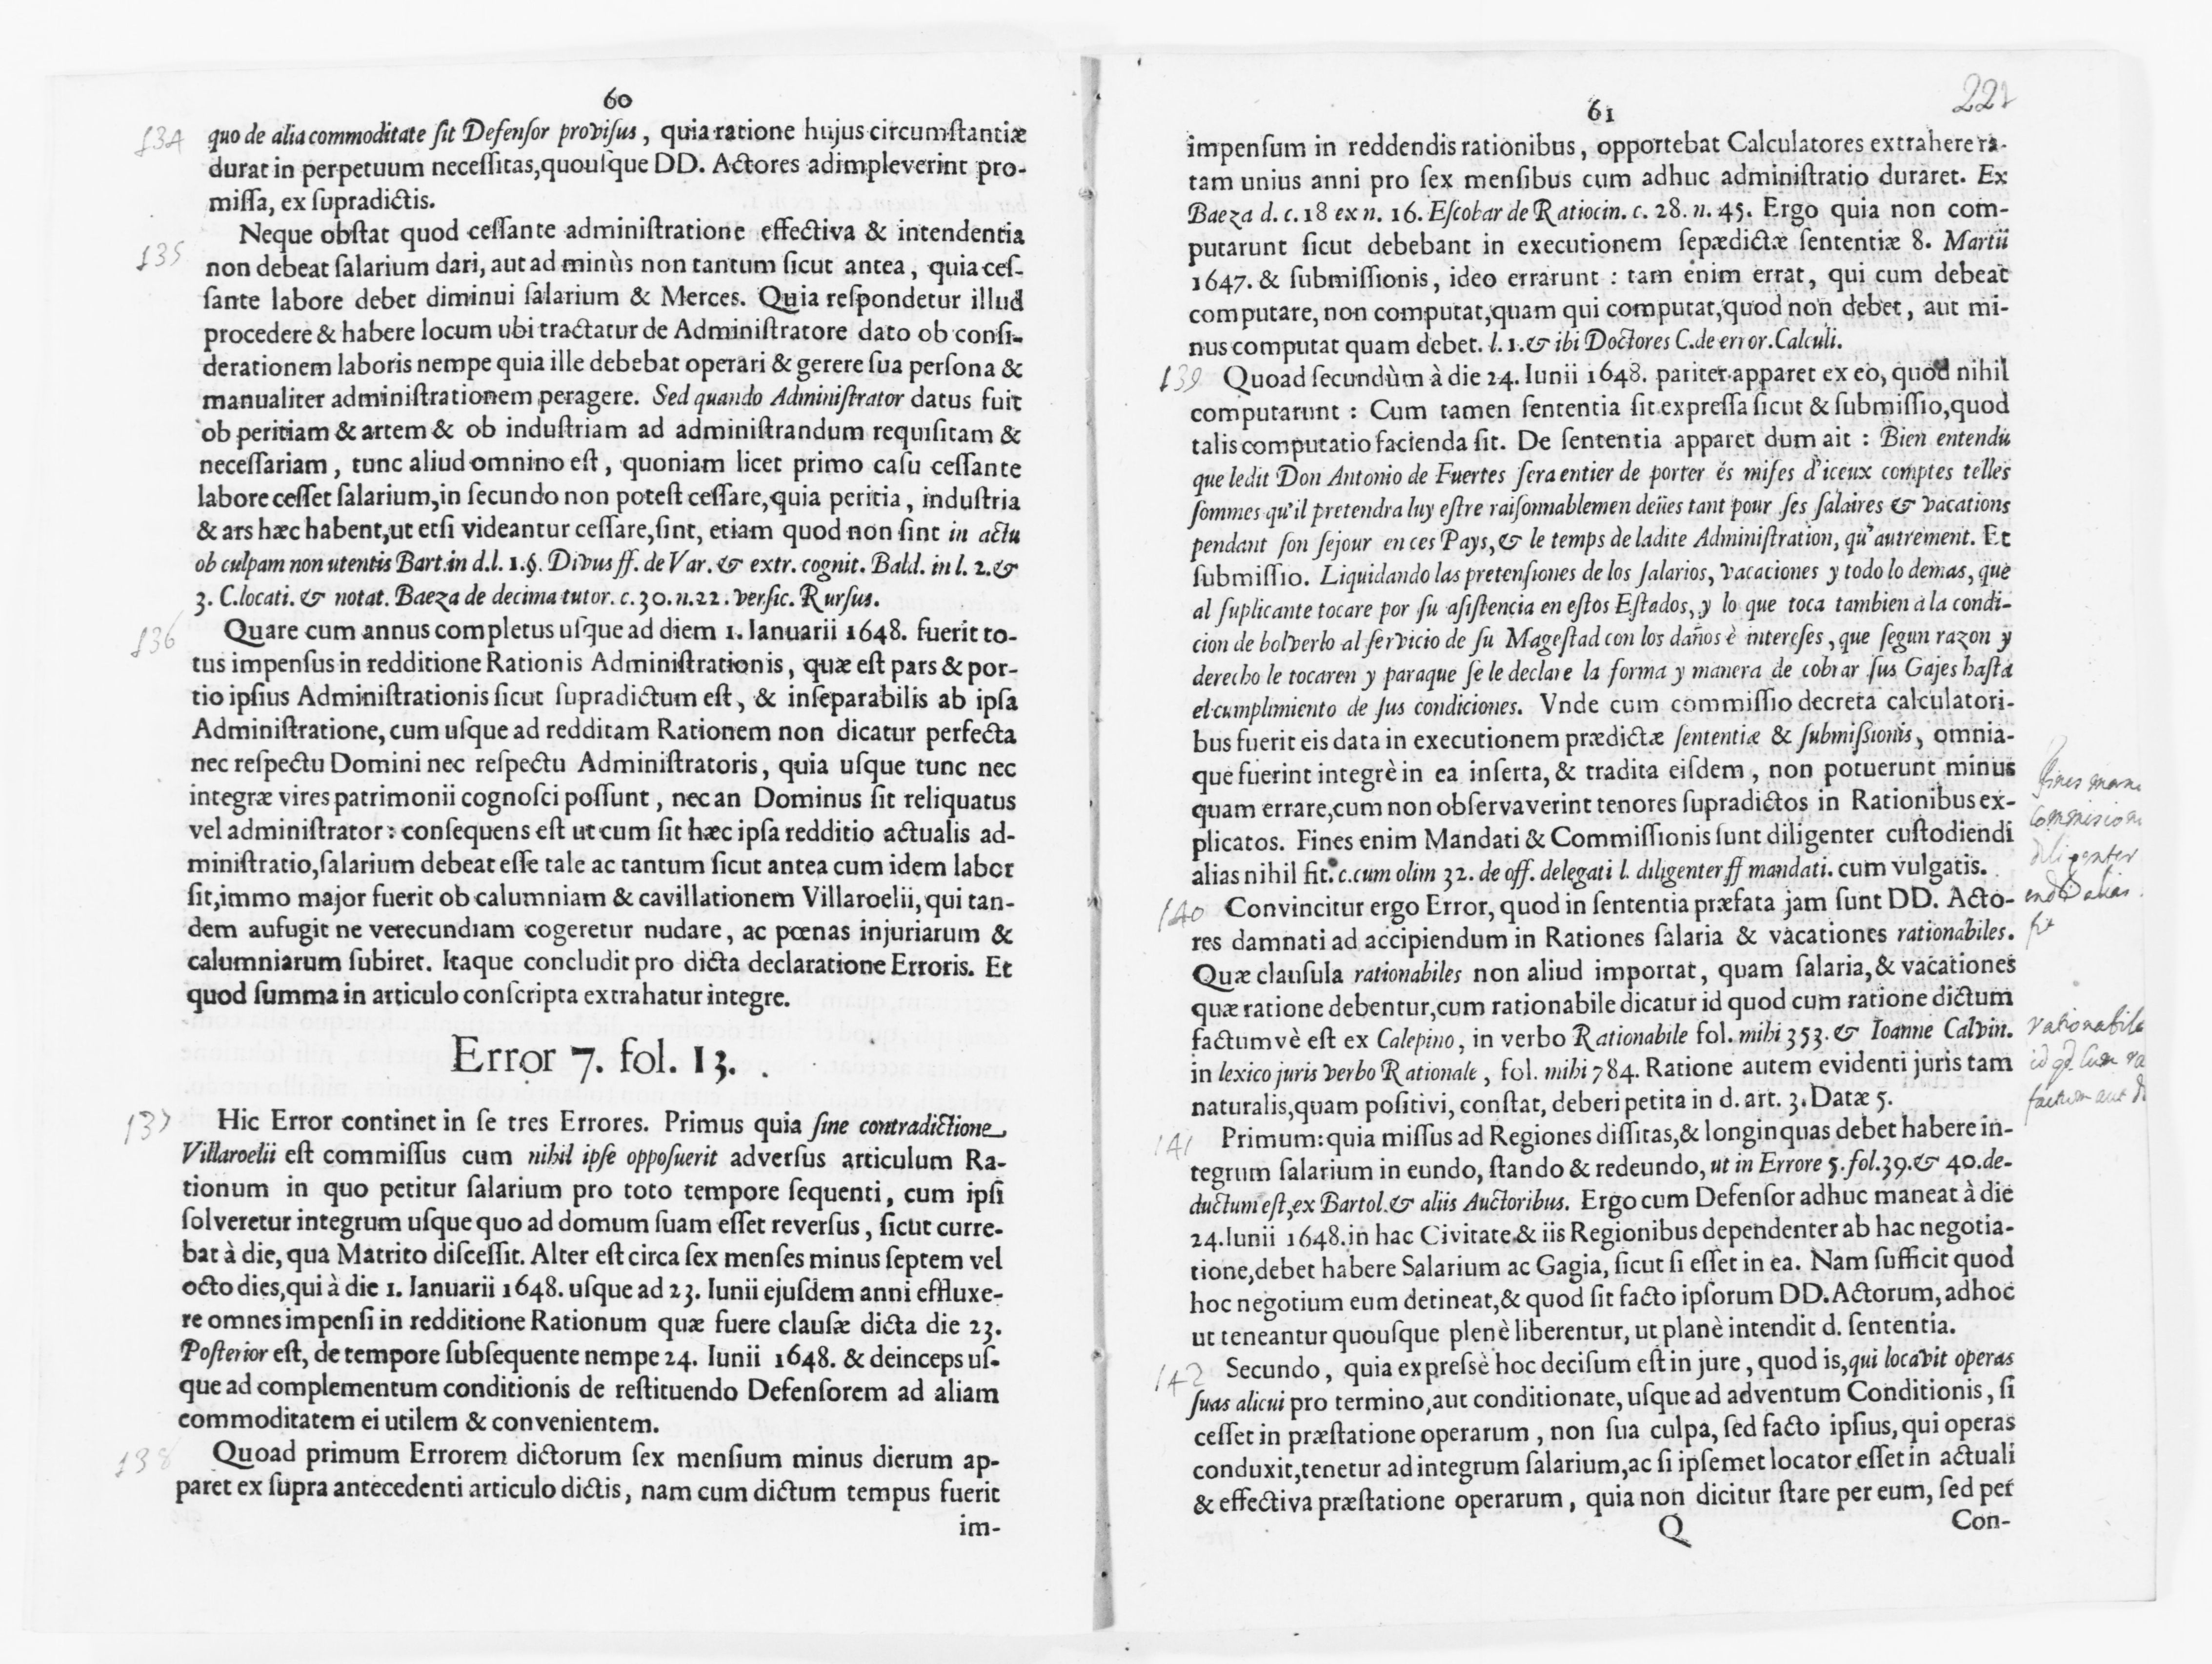 60
134 quo de alia commoditate ſit Defenſor proviſus, quia ratione hujus circumſtantiæ
durat in perpetuum neceſſitas, quouſque DD. Actores adimpleverint pro-
miſſa, ex ſupradictis.
135 Neque obſtat quod ceſſante adminiſtratione effectiva & intendentia
non debeat ſalarium dari, aut ad minùs non tantum ſicut antea, quia ceſ-
ſante labore debet diminui ſalarium & Merces. Quia reſpondetur illud
procedere & habere locum ubi tractatur de Adminiſtratore dato ob conſi-
derationem laboris nempe quia ille debebat operari & gerere ſua perſona &
manualiter adminiſtrationem peragere. Sed quando Adminiſtrator datus fuit
ob peritiam & artem & ob induſtriam ad adminiſtrandum requiſitam &
neceſſariam, tunc aliud omnino eſt, quoniam licet primo caſu ceſſante
labore ceſſet ſalarium, in ſecundo non poteſt ceſſare, quia peritia, induſtria
& ars hæc habent, ut etſi videantur ceſſare, ſint, etiam quod non ſint in actu
ob culpam non utentis Bart. in d.l. 1. §. Divus ff. de Var. & extr. cognit. Bald. in l. 2. &
3. C. locati. & notat. Baeza de decima tutor. c. 30. n. 22. verſic. Rurſus.
136 Quare cum annus completus uſque ad diem 1. Ianuarii 1648. fuerit to-
tus impenſus in redditione Rationis Adminiſtrationis, quæ eſt pars & por-
tio ipſius Adminiſtrationis ſicut ſupradictum eſt, & inſeparabilis ab ipſa
Adminiſtratione, cum uſque ad redditam Rationem non dicatur perfecta
nec reſpectu Domini nec reſpectu Adminiſtratoris, quia uſque tunc nec
integræ vires patrimonii cognoſci poſſunt, nec an Dominus ſit reliquatus
vel adminiſtrator: conſequens eſt ut cum ſit hæc ipſa redditio actualis ad-
miniſtratio, ſalarium debeat eſſe tale ac tantum ſicut antea cum idem labor
ſit, immo major fuerit ob calumniam & cavillationem Villaroelii, qui tan-
dem aufugit ne verecundiam cogeretur nudare, ac pœnas injuriarum &
calumniarum ſubiret. Itaque concludit pro dicta declaratione Erroris. Et
quod ſumma in articulo conſcripta extrahatur integre.
Error 7. fol. 13.
137 Hic Error continet in ſe tres Errores. Primus quia ſine contradictione
Villaroelii eſt commiſſus cum nihil ipſe oppoſuerit adverſus articulum Ra-
tionum in quo petitur ſalarium pro toto tempore ſequenti, cum ipſi
ſolveretur integrum uſque quo ad domum ſuam eſſet reverſus, ſicut curre-
bat à die, qua Matrito diſceſſit. Alter eſt circa ſex menſes minus ſeptem vel
octo dies, qui à die 1. Ianuarii 1648. uſque ad 23. Iunii ejuſdem anni effluxe-
re omnes impenſi in redditione Rationum quæ fuere clauſæ dicta die 23.
Poſterior eſt, de tempore ſubſequente nempe 24. Iunii 1648. & deinceps uſ-
que ad complementum conditionis de reſtituendo Defenſorem ad aliam
commoditatem ei utilem & convenientem.
138 Quoad primum Errorem dictorum ſex menſium minus dierum ap-
paret ex ſupra antecedenti articulo dictis, nam cum dictum tempus fuerit
im-
61
221
impenſum in reddendis rationibus, opportebat Calculatores extrahere ra-
tam unius anni pro ſex menſibus cum adhuc adminiſtratio duraret. Ex
Baeza d. c. 18 ex n. 16. Eſcobar de Ratiocin. c. 28. n. 45. Ergo quia non com-
putarunt ſicut debebant in executionem ſepædictæ ſententiæ 8. Martii
1647. & ſubmiſſionis, ideo errarunt: tam enim errat, qui cum debeat
computare, non computat, quam qui computat, quod non debet, aut mi-
nus computat quam debet. l. 1. & ibi Doctores C. de error. Calculi.
139 Quoad ſecundùm à die 24. Iunii 1648. pariter apparet ex eo, quod nihil
computarunt: Cum tamen ſententia ſit expreſſa ſicut & ſubmiſſio, quod
talis computatio facienda ſit. De ſententia apparet dum ait: Bien entendu
que ledit Don Antonio de Fuertes ſera entier de porter és miſes d'iceux comptes telles
ſommes qu'il pretendra luy eſtre raiſonnablemen deües tant pour ſes ſalaires & vacations
pendant ſon ſejour en ces Pays, & le temps de ladite Adminiſtration, qu'autrement. Et
ſubmiſſio. Liquidando las pretenſiones de los ſalarios, vacaciones y todo lo demas, que
al ſuplicante tocare por ſu aſiſtencia en eſtos Eſtados, y lo que toca tambien à la condi-
cion de bolverlo al ſervicio de ſu Mageſtad con los daños è intereſes, que ſegun razon y
derecho le tocaren y paraque ſe le declare la forma y manera de cobrar ſus Gajes haſta
el cumplimiento de ſus condiciones. Vnde cum commiſſio decreta calculatori-
bus fuerit eis data in executionem prædictæ ſententiæ & ſubmiſſionis, omnia-
que fuerint integrè in ea inſerta, & tradita eiſdem, non potuerunt minus
quam errare, cum non obſervaverint tenores ſupradictos in Rationibus ex-
plicatos. Fines enim Mandati & Commiſſionis ſunt diligenter cuſtodiendi
alias nihil fit. c. cum olim 32. de off. delegati l. diligenter ff mandati. cum vulgatis.
140 Convincitur ergo Error, quod in ſententia præfata jam ſunt DD. Acto-
res damnati ad accipiendum in Rationes ſalaria & vacationes rationabiles.
Quæ clauſula rationabiles non aliud importat, quam ſalaria, & vacationes
quæ ratione debentur, cum rationabile dicatur id quod cum ratione dictum
factumvè eſt ex Calepino, in verbo Rationabile fol. mihi 353. & Ioanne Calvin.
in lexico juris verbo Rationale, fol. mihi 784. Ratione autem evidenti juris tam
naturalis, quam poſitivi, conſtat, deberi petita in d. art. 3. Datæ 5.
141 Primum: quia miſſus ad Regiones diſſitas, & longinquas debet habere in-
tegrum ſalarium in eundo, ſtando & redeundo, ut in Errore 5. fol. 39. & 40. de-
ductum eſt, ex Bartol. & aliis Auctoribus. Ergo cum Defenſor adhuc maneat à die
24. Iunii 1648. in hac Civitate & iis Regionibus dependenter ab hac negotia-
tione, debet habere Salarium ac Gagia, ſicut ſi eſſet in ea. Nam ſufficit quod
hoc negotium eum detineat, & quod ſit facto ipſorum DD. Actorum, adhoc
ut teneantur quouſque plenè liberentur, ut planè intendit d. ſententia.
142 Secundo, quia expreſsè hoc deciſum eſt in jure, quod is, qui locavit operas
ſuas alicui pro termino, aut conditionate, uſque ad adventum Conditionis, ſi
ceſſet in præſtatione operarum, non ſua culpa, ſed facto ipſius, qui operas
conduxit, tenetur ad integrum ſalarium, ac ſi ipſemet locator eſſet in actuali
& effectiva præſtatione operarum, quia non dicitur ſtare per eum, ſed per
Q
Con-
fines
diligenter
alias
rationabile
id